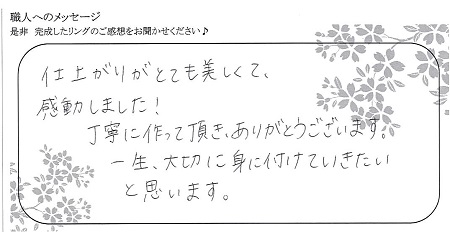 職人へのメッセージ
是非 完成したリングのご感想をお聞かせください♪
仕上がりがとても美しくて、
感動しました!
丁寧に作って頂き、ありがとうございます。
一生、大切に身に付けていきたい
と思います。